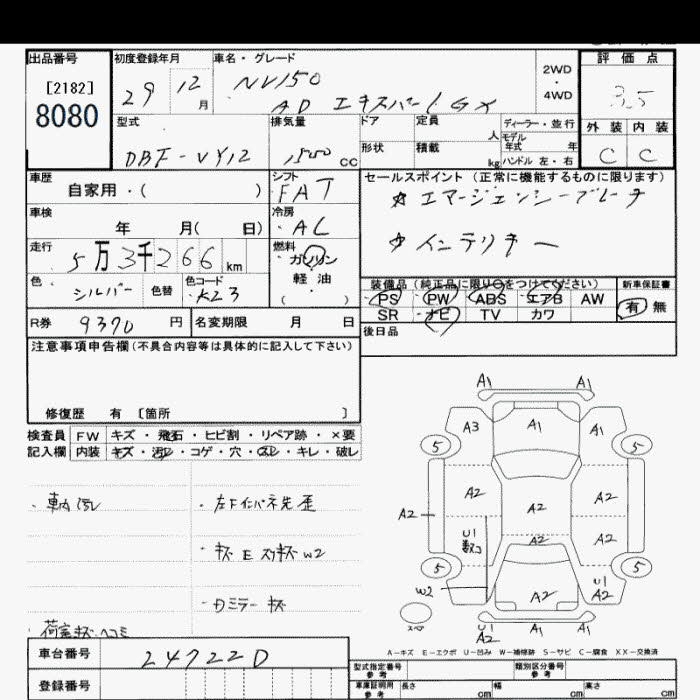 出品番号
[2182]
8080
初度登録年月
29 12月
車名・グレード
NV150
AD エキスパート GX
2WD
・
4WD
評価点
3.5
外装 内装
C C
型式
DBF-VY12
排気量
1500cc
ドア 定員 人
形状 積載 kg
ディーラー・並行
モデル年式 年
ハンドル 左・右
車歴
自家用・( )
シフト
FAT
セールスポイント(正常に機能するものに限ります)
☆ エマージェンシーブレーキ
☆ インテリキー
車検
年 月( 日)
冷房
AC
走行
5万3千266km
燃料
ガソリン
軽油
( )
色
シルバー
色替
色コード
K23
装備品(純正品に限り○をつけてください)
PS PW ABS エアB AW
SR ナビ TV カワ
新車保証書
有 無
R券 9370円
名変期限 月 日
後日品
注意事項申告欄(不具合内容等は具体的に記入して下さい)
修復歴 有 [箇所 ]
検査員記入欄
FW キズ・飛石・ヒビ割・リペア跡・×要
内装 キズ・汚レ・コゲ・穴・スレ・キレ・破レ
・車内汚レ
・左Fインパネ先歪
・キズ E スリキズ W2
・Dミラーキズ
荷室キズ、ヘコミ
A1 A1
A3 A1 A1
5 5
A2 A2 A2
A2
U1
数コ
A2 A2
5 5
W2
A2 U1
A2
スペア
U1
A2 A1 A1
A-キズ E-エクボ U-凹み W-補修跡 S-サビ C-腐食 XX-交換済
車台番号 247220
登録番号
型式指定番号
参考
類別区分番号
参考
車庫証明用
参考
長さ cm 幅 cm 高さ cm